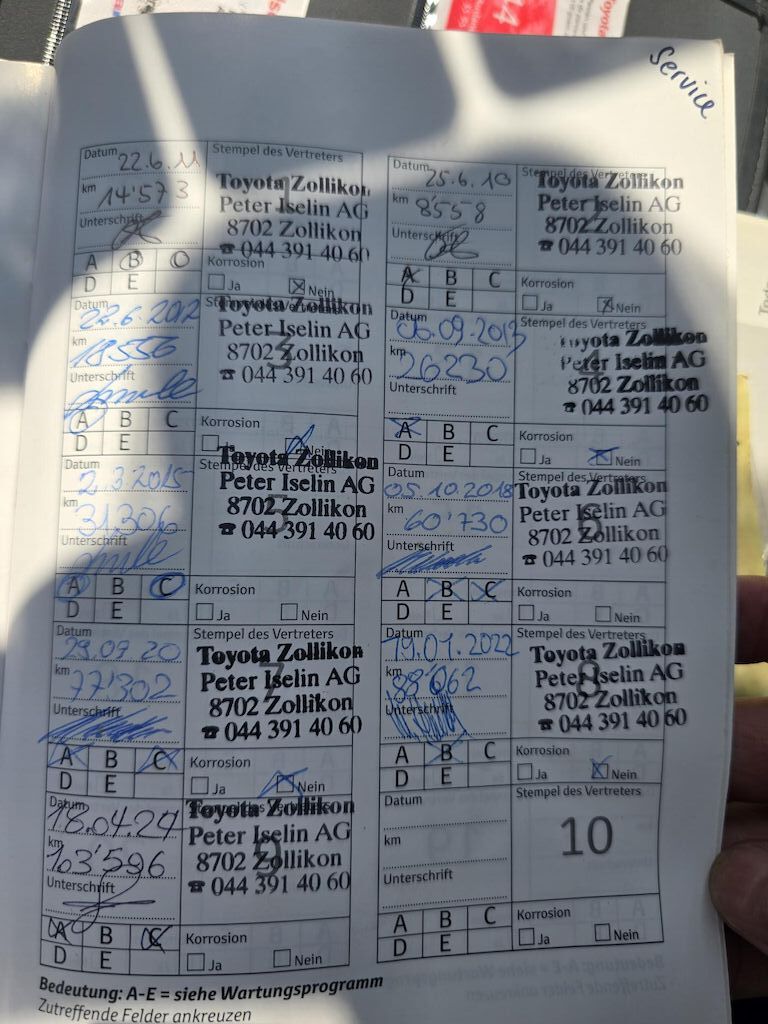 Service
Datum 22.6.11
km 14'573
Unterschrift
Stempel des Vertreters
1
Toyota Zollikon
Peter Iselin AG
8702 Zollikon
☎ 044 391 40 60
A B C
D E
Korrosion
Ja Nein
Datum 25.6.10
km 8558
Unterschrift
Stempel des Vertreters
2
Toyota Zollikon
Peter Iselin AG
8702 Zollikon
☎ 044 391 40 60
A B C
D E
Korrosion
Ja Nein
Datum 22.6.2012
km 18556
Unterschrift
Stempel des Vertreters
3
Toyota Zollikon
Peter Iselin AG
8702 Zollikon
☎ 044 391 40 60
A B C
D E
Korrosion
Ja Nein
Datum 06.09.2013
km 26230
Unterschrift
Stempel des Vertreters
4
Toyota Zollikon
Peter Iselin AG
8702 Zollikon
☎ 044 391 40 60
A B C
D E
Korrosion
Ja Nein
Datum 2.3.2015
km 31,306
Unterschrift
Stempel des Vertreters
5
Toyota Zollikon
Peter Iselin AG
8702 Zollikon
☎ 044 391 40 60
A B C
D E
Korrosion
Ja Nein
Datum 05.10.2018
km 60'730
Unterschrift
Stempel des Vertreters
6
Toyota Zollikon
Peter Iselin AG
8702 Zollikon
☎ 044 391 40 60
A B C
D E
Korrosion
Ja Nein
Datum 29.07.20
km 77'302
Unterschrift
Stempel des Vertreters
7
Toyota Zollikon
Peter Iselin AG
8702 Zollikon
☎ 044 391 40 60
A B C
D E
Korrosion
Ja Nein
Datum 19.01.2022
km 88'062
Unterschrift
Stempel des Vertreters
8
Toyota Zollikon
Peter Iselin AG
8702 Zollikon
☎ 044 391 40 60
A B C
D E
Korrosion
Ja Nein
Datum 18.04.24
km 103'596
Unterschrift
Stempel des Vertreters
9
Toyota Zollikon
Peter Iselin AG
8702 Zollikon
☎ 044 391 40 60
A B C
D E
Korrosion
Ja Nein
Datum
km
Unterschrift
Stempel des Vertreters
10
A B C
D E
Korrosion
Ja Nein
Bedeutung: A-E = siehe Wartungsprogramm
Zutreffende Felder ankreuzen